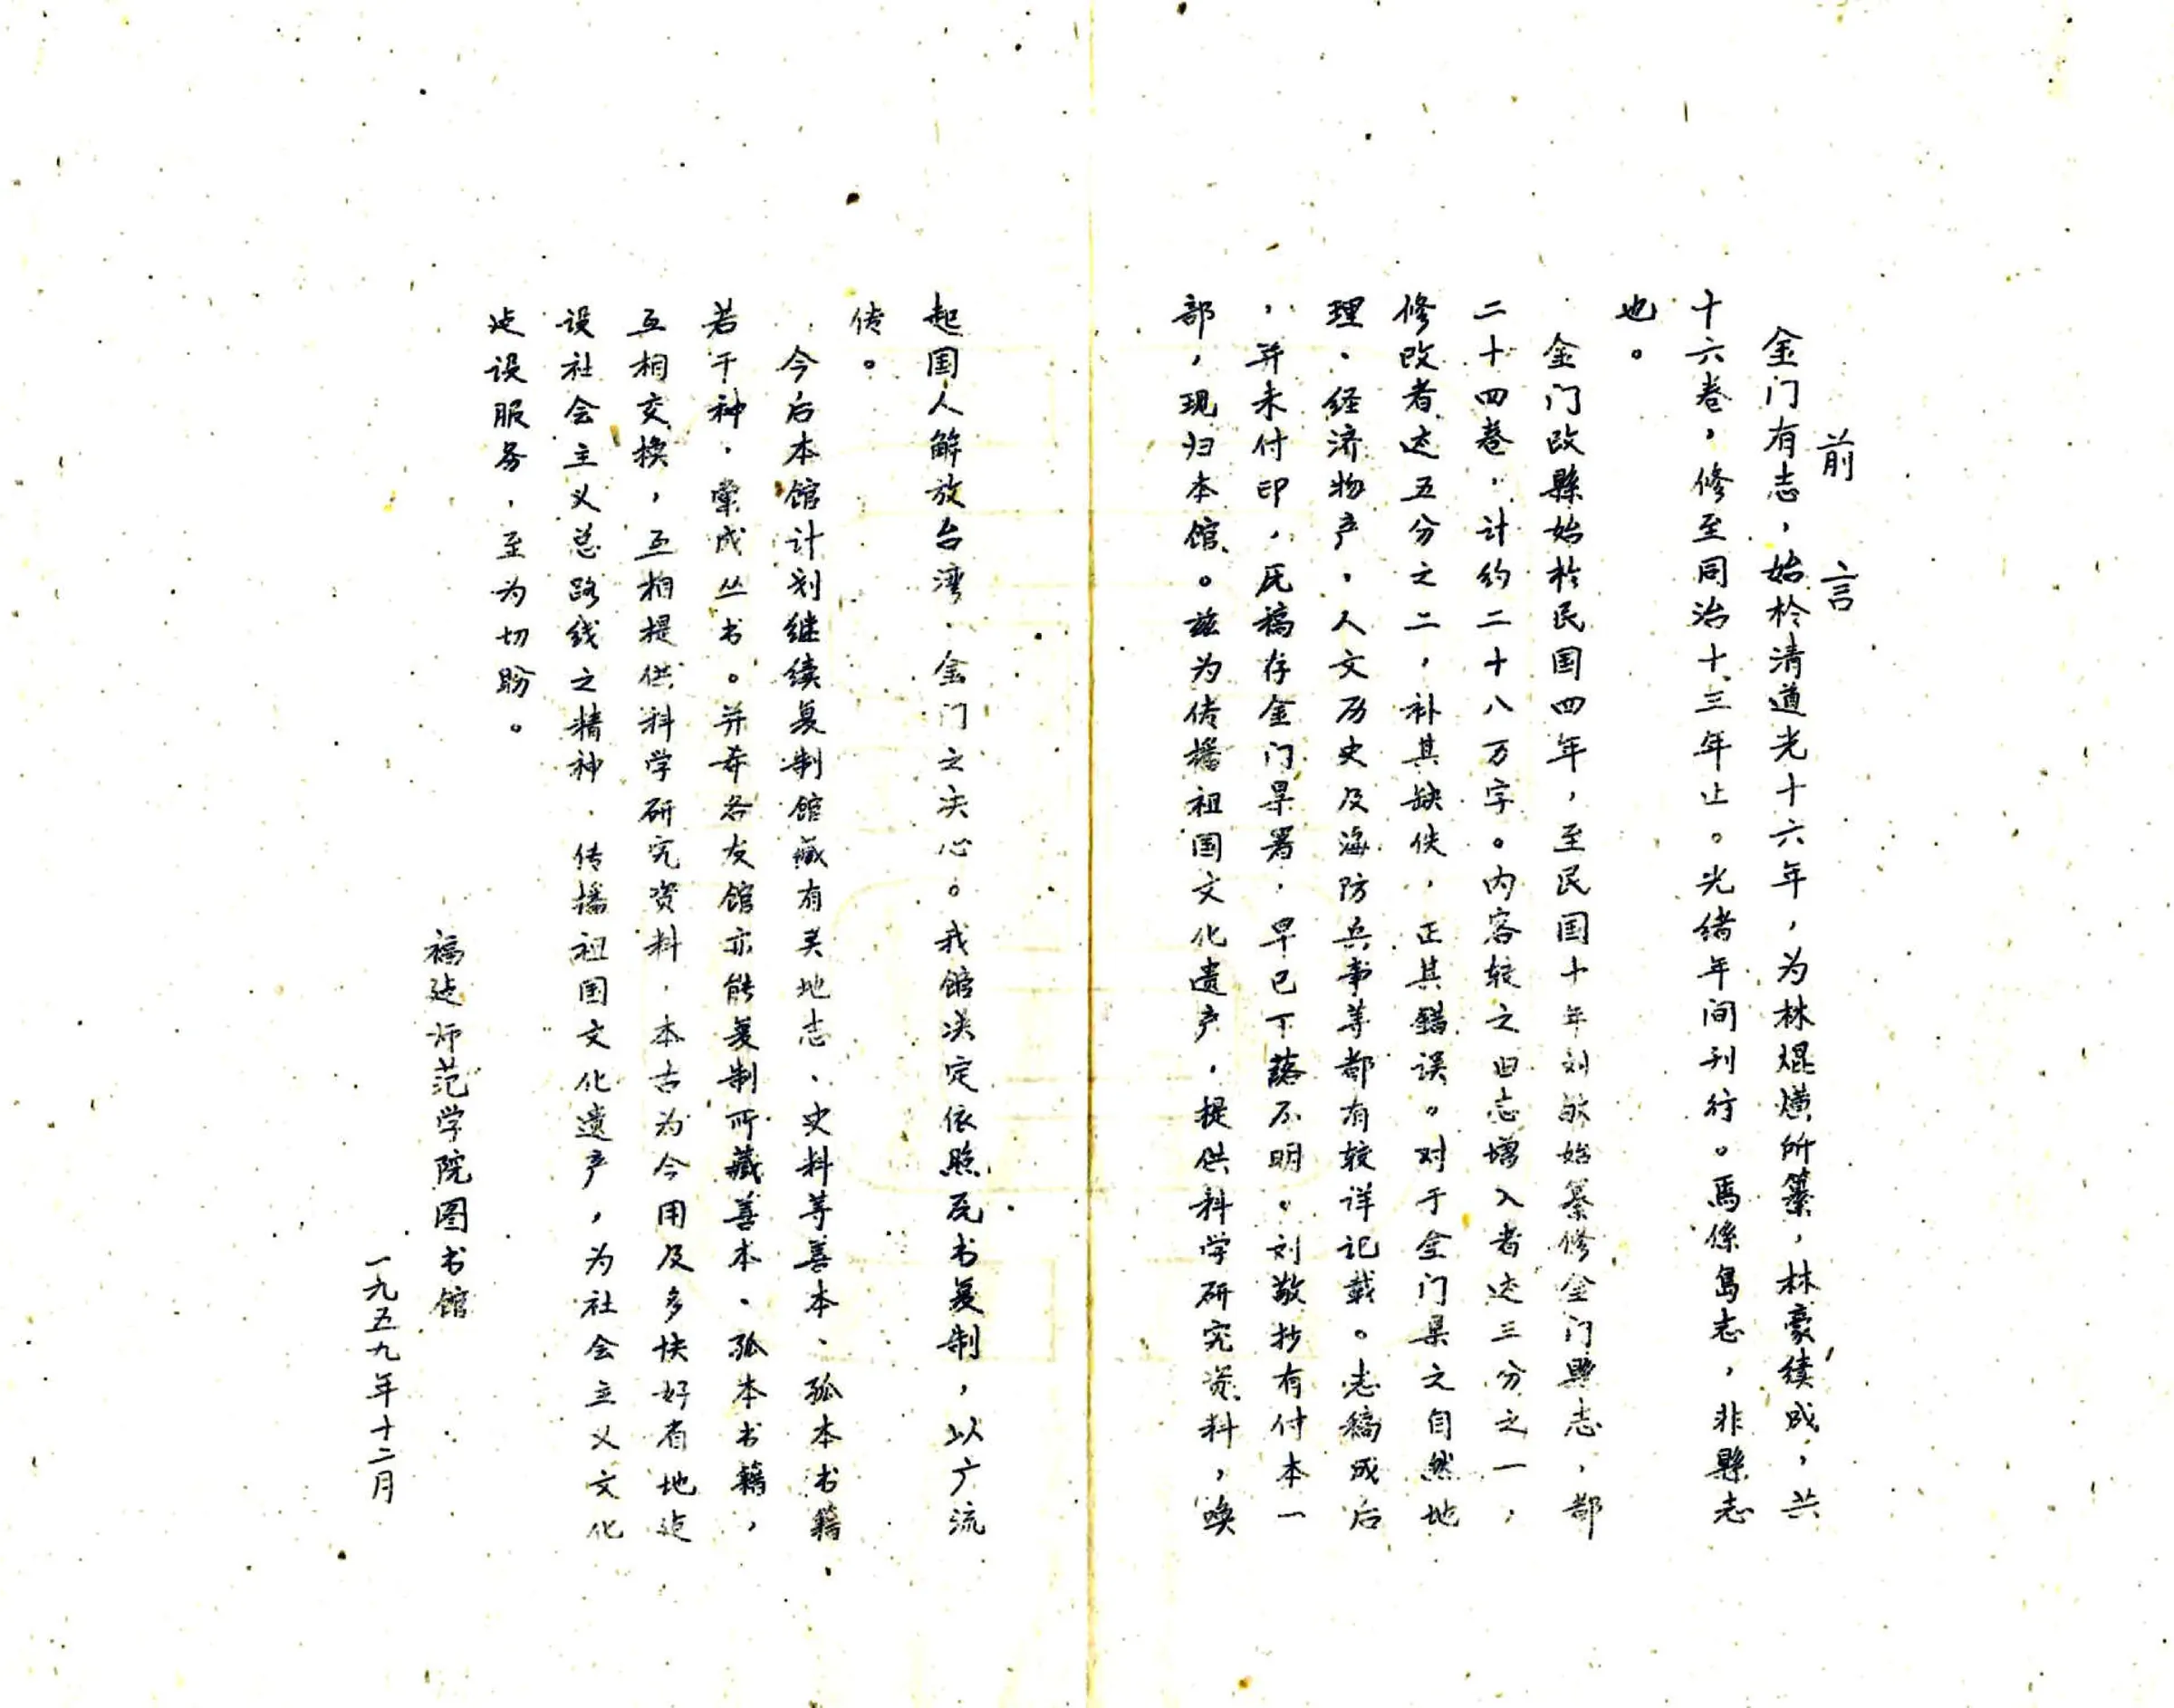 前言
金门有志，始於清道光十六年，为林焜熿所纂，林豪续成，共
十六卷，修至同治十三年止。光绪年间刊行。馬係島志，非縣志
也。
金门改縣始於民国四年，至民国十年刘敬始纂修金门縣志，都
二十四卷，计约二十八万字。内容较之旧志增入者达三分之一，
修改者达五分之二，补其缺佚，正其錯误。对于金门県之自然地
理、经济物产，人文历史及海防兵事等都有较详记载。志稿成后
，并未付印，厡稿存金门県署，早已下落不明。刘敬抄有付本一
部，现归本馆。兹为传播祖国文化遗产，提供科学研究资料，唤
起国人解放台湾、金门之决心。我馆决定依照厡书复制，以广流
传。
今后本馆计划继续复制馆藏有关地志、史料等善本、孤本书籍，
若干种，彙成丛书。并希各友馆亦能复制所藏善本、孤本书籍，
互相交换，互相提供科学研究资料，本古为今用及多快好省地建
设社会主义总路线之精神，传播祖国文化遗产，为社会主义文化
建设服务，至为切盼。
福建师范学院图书馆
一九五九年十二月